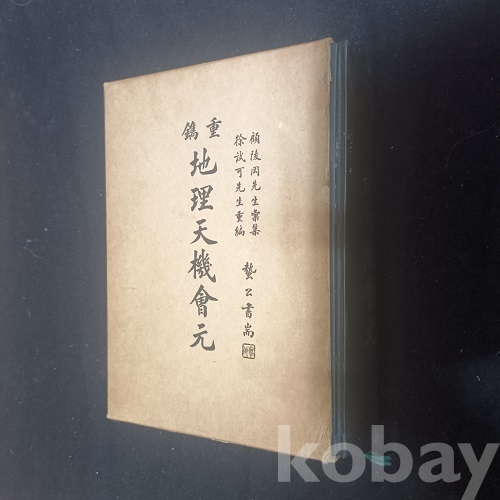 顧陵岡先生彙集
徐試可先生重編
重鐫
地理天機會元
kobay